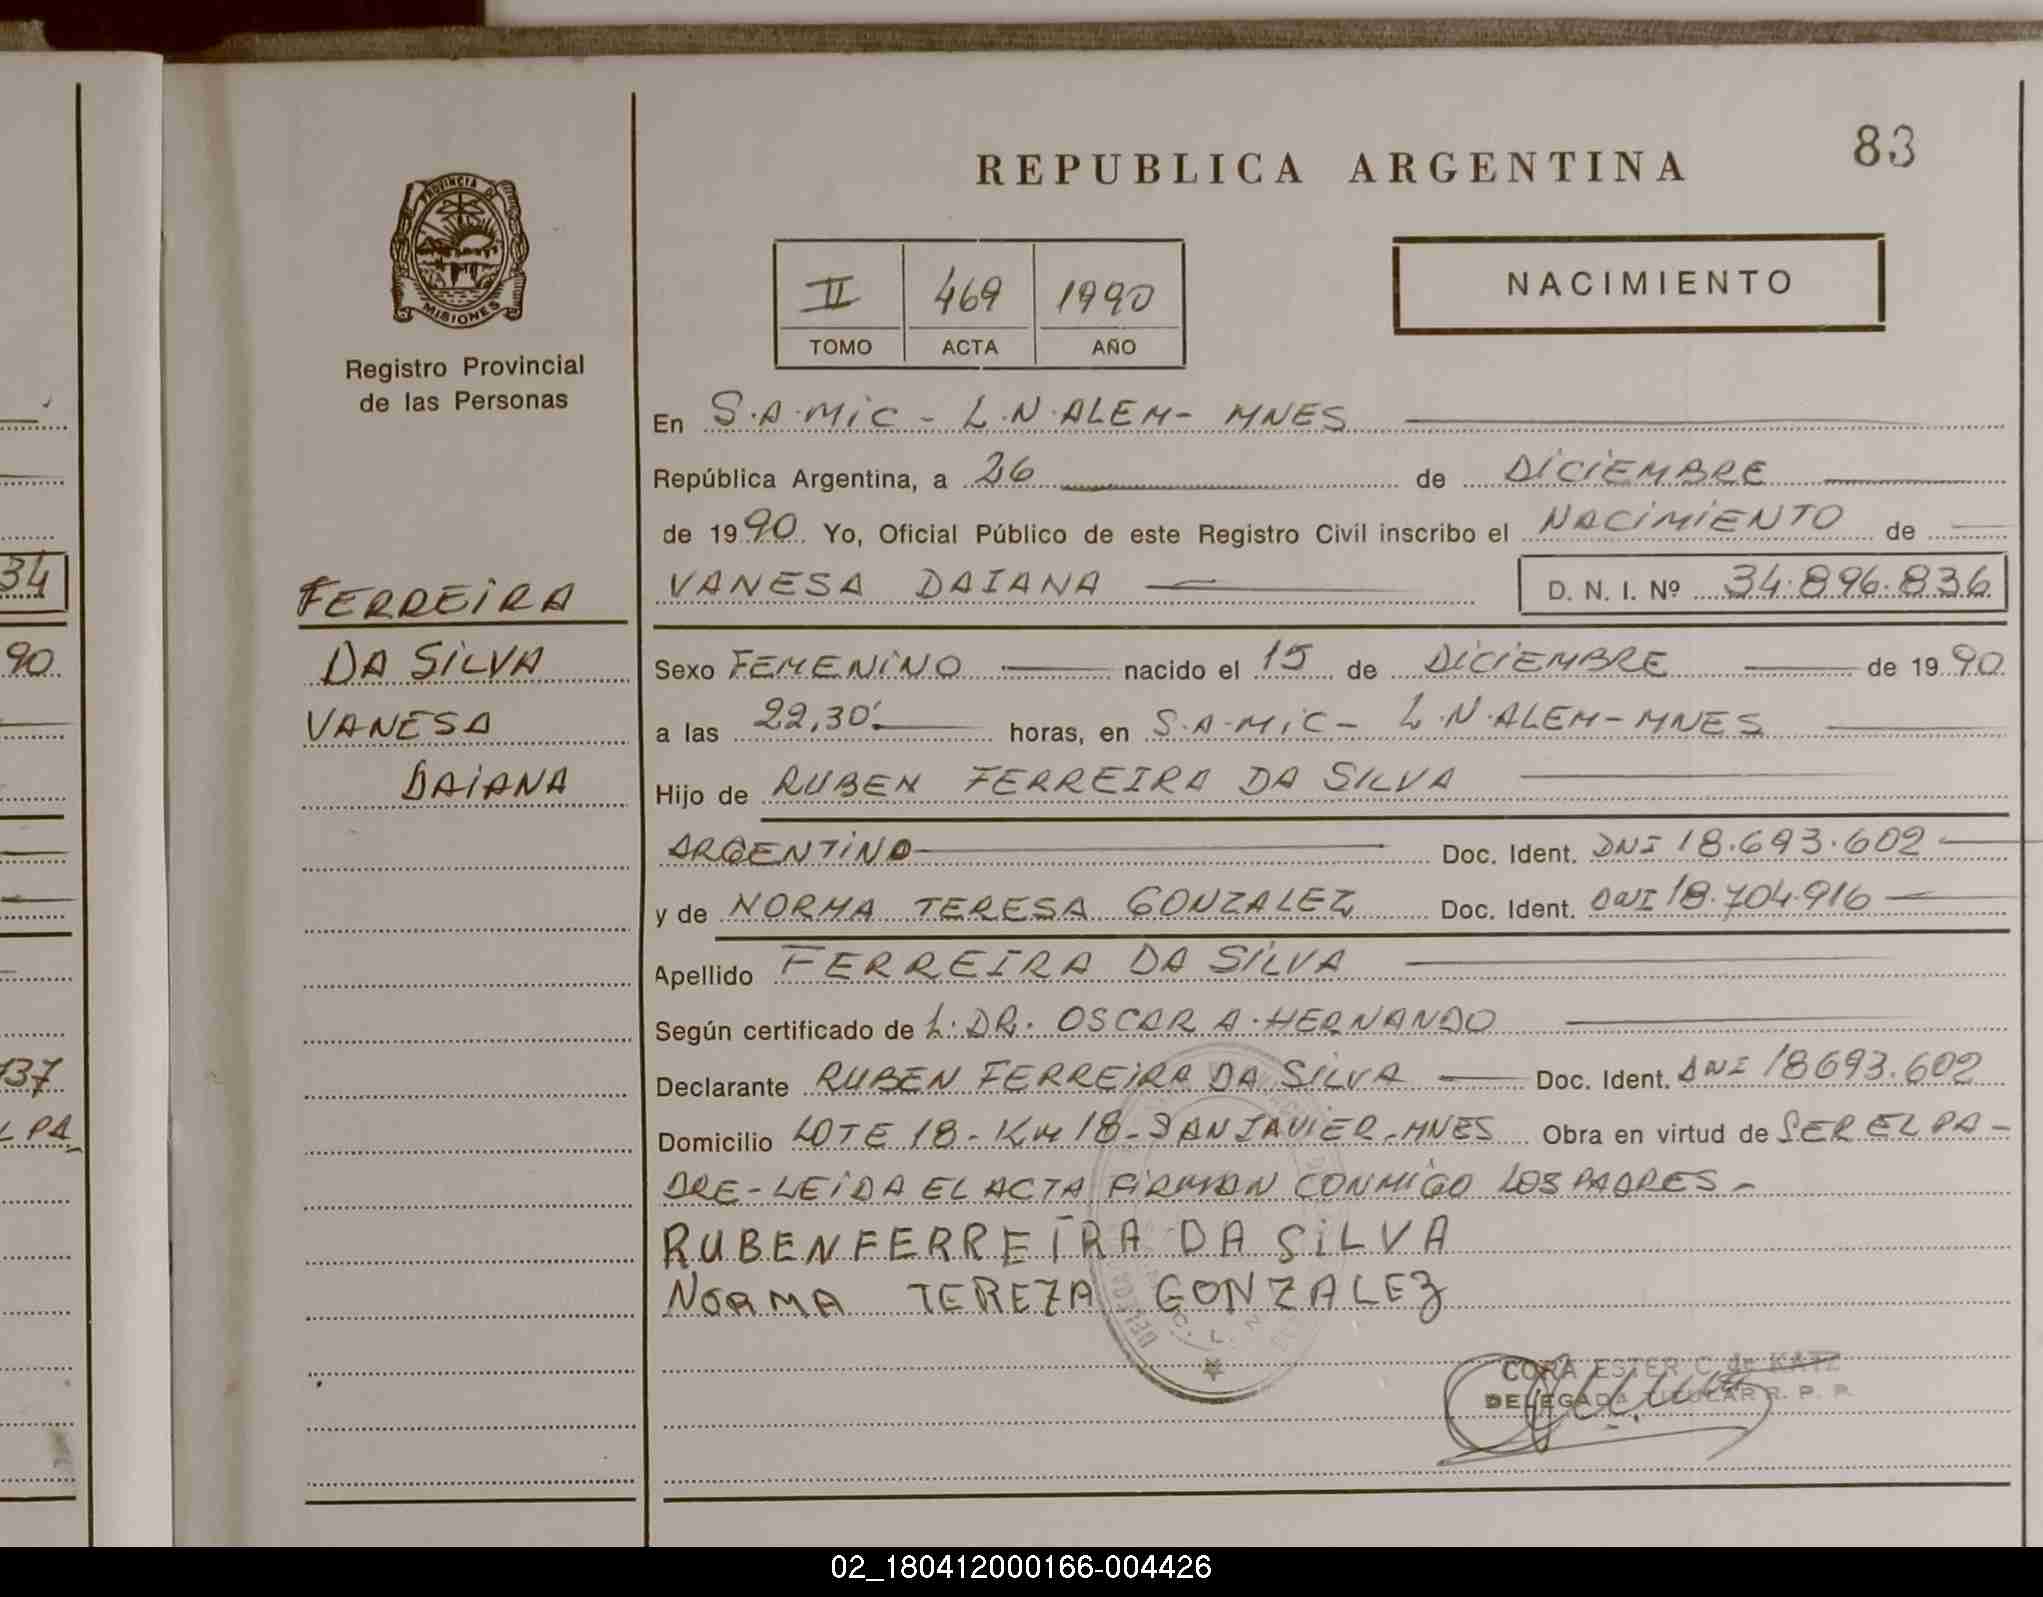 83
REPUBLICA ARGENTINA
PROVINCIA DE
MISIONES
Registro Provincial
de las Personas
II 469 1990
TOMO ACTA AÑO
NACIMIENTO
En S.A.MiC - L.N.ALEM - MNES
República Argentina, a 26 de DICIEMBRE
de 1990. Yo, Oficial Público de este Registro Civil inscribo el NACIMIENTO de
VANESA DAIANA D. N. I. Nº 34.896.836
FERREIRA
DA SILVA
VANESA
DAIANA
Sexo FEMENINO nacido el 15 de DICIEMBRE de 1990
a las 22,30' horas, en S.A.MiC - L.N.ALEM - MNES
Hijo de RUBEN FERREIRA DA SILVA
ARGENTINO Doc. Ident. DNI 18.693.602
y de NORMA TERESA GONZALEZ Doc. Ident. DNI 18.704.916
Apellido FERREIRA DA SILVA
Según certificado de L. DR. OSCAR A. HERNANDO
Declarante RUBEN FERREIRA DA SILVA Doc. Ident. DNI 18693.602
Domicilio LOTE 18 - KM 18 - SAN JAVIER - MNES Obra en virtud de SER EL PA-
DRE - LEIDA EL ACTA FIRMAN CONMIGO LOS PADRES -
RUBEN FERREIRA DA SILVA
NORMA TEREZA GONZALEZ
CORA ESTER C. de KATZ
DELEGADA TITULAR R. P. P.
34
90
137
L PA
02_180412000166-004426